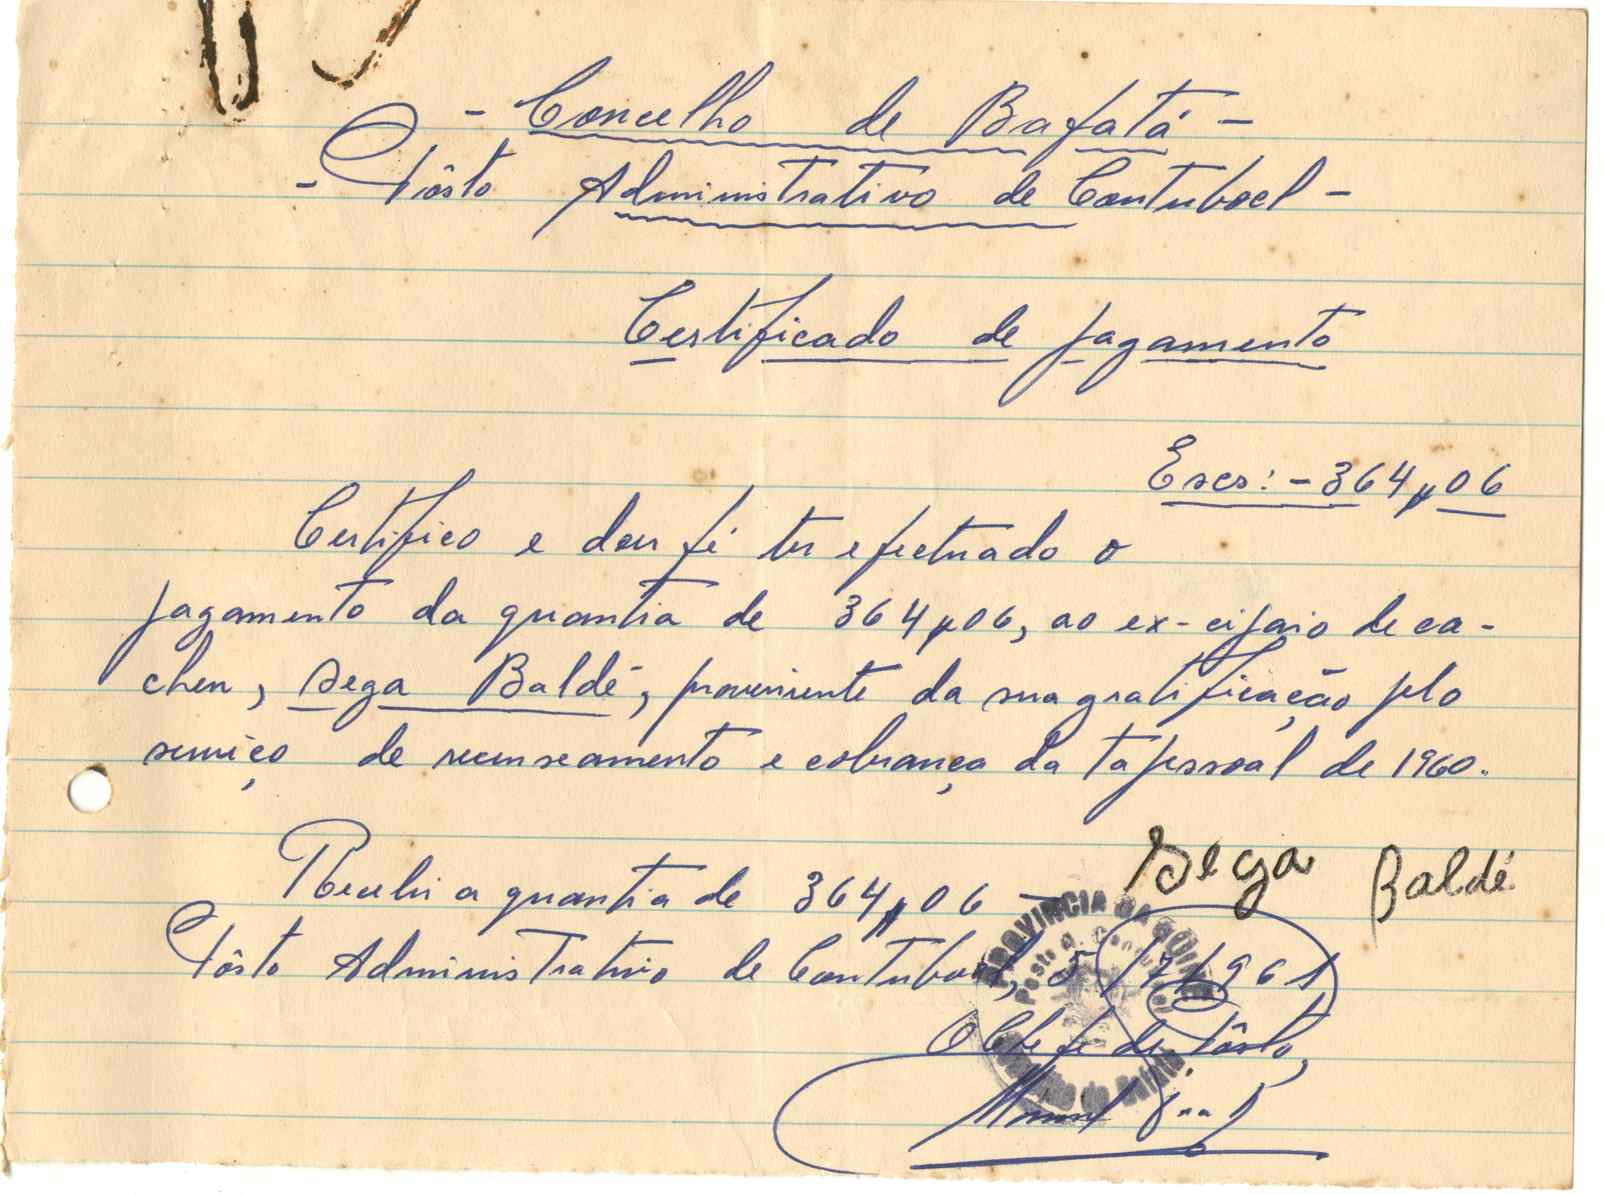 - Concelho de Bafatá -
- Pôsto Administrativo de Contuboel -
Certificado de pagamento
Escs: - 364$06
Certifico e dou fé ter efectuado o
pagamento da quantia de 364$06, ao ex-cipaio de ca-
cheu, Sega Baldé, proveniente da sua gratificação pelo
serviço de recenseamento e cobrança da ta pessoal de 1960.
Sega Baldé
Recebi a quantia de 364$06 -
Pôsto Administrativo de Contuboel, 5/7/1961
O Chefe de Pôsto,
PROVINCIA DA GUINÉ